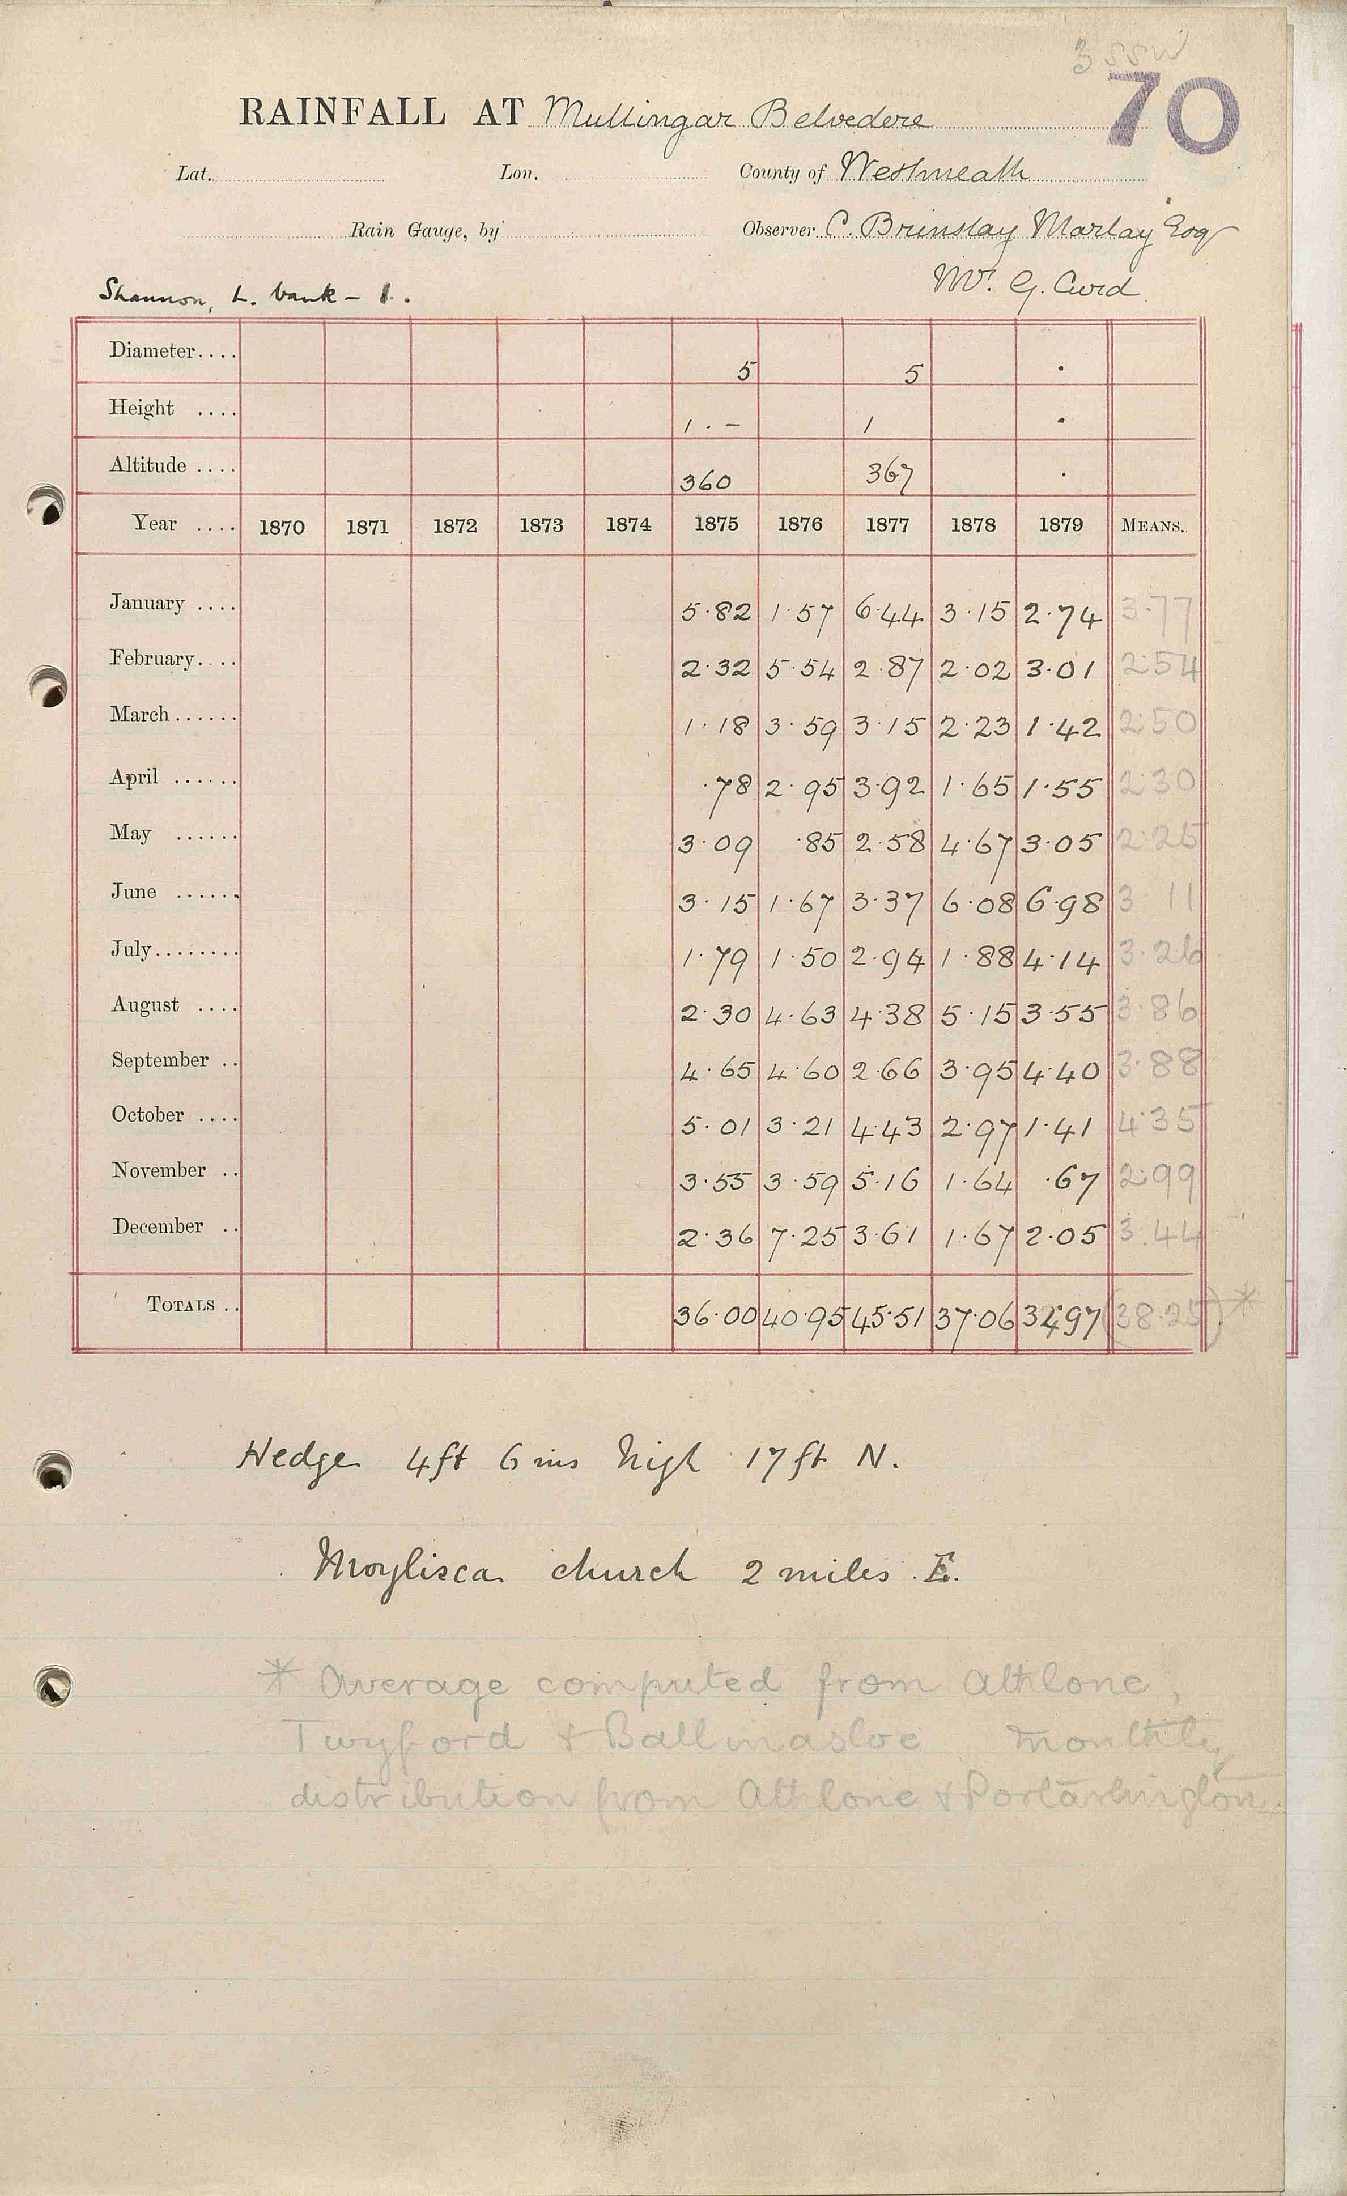 3 SSW
70
RAINFALL AT Mullingar Belvedere
Lat. Lon. County of Westmeath
Rain Gauge, by Observer C. Brinslay Marlay Esq
Mr. G. Curd
Shannon, L. bank – 1.
Diameter.... 5 5 .
Height .... 1 . – 1 .
Altitude .... 360 367 .
Year .... 1870 1871 1872 1873 1874 1875 1876 1877 1878 1879 MEANS.
January .... 5.82 1.57 6.44 3.15 2.74 3.77
February.... 2.32 5.54 2.87 2.02 3.01 2.54
March...... 1.18 3.59 3.15 2.23 1.42 2.50
April ...... .78 2.95 3.92 1.65 1.55 2.30
May ...... 3.09 .85 2.58 4.67 3.05 2.25
June ...... 3.15 1.67 3.37 6.08 6.98 3.11
July........ 1.79 1.50 2.94 1.88 4.14 3.26
August .... 2.30 4.63 4.38 5.15 3.55 3.86
September .. 4.65 4.60 2.66 3.95 4.40 3.88
October .... 5.01 3.21 4.43 2.97 1.41 4.35
November .. 3.55 3.59 5.16 1.64 .67 2.99
December .. 2.36 7.25 3.61 1.67 2.05 3.44
TOTALS .. 36.00 40.95 45.51 37.06 34.97 (38.25)*
Hedge 4ft 6 ins high 17ft N.
Moylisca church 2 miles E.
* Average computed from Athlone,
Twyford & Ballinasloe monthly
distribution from Athlone & Portarlington.